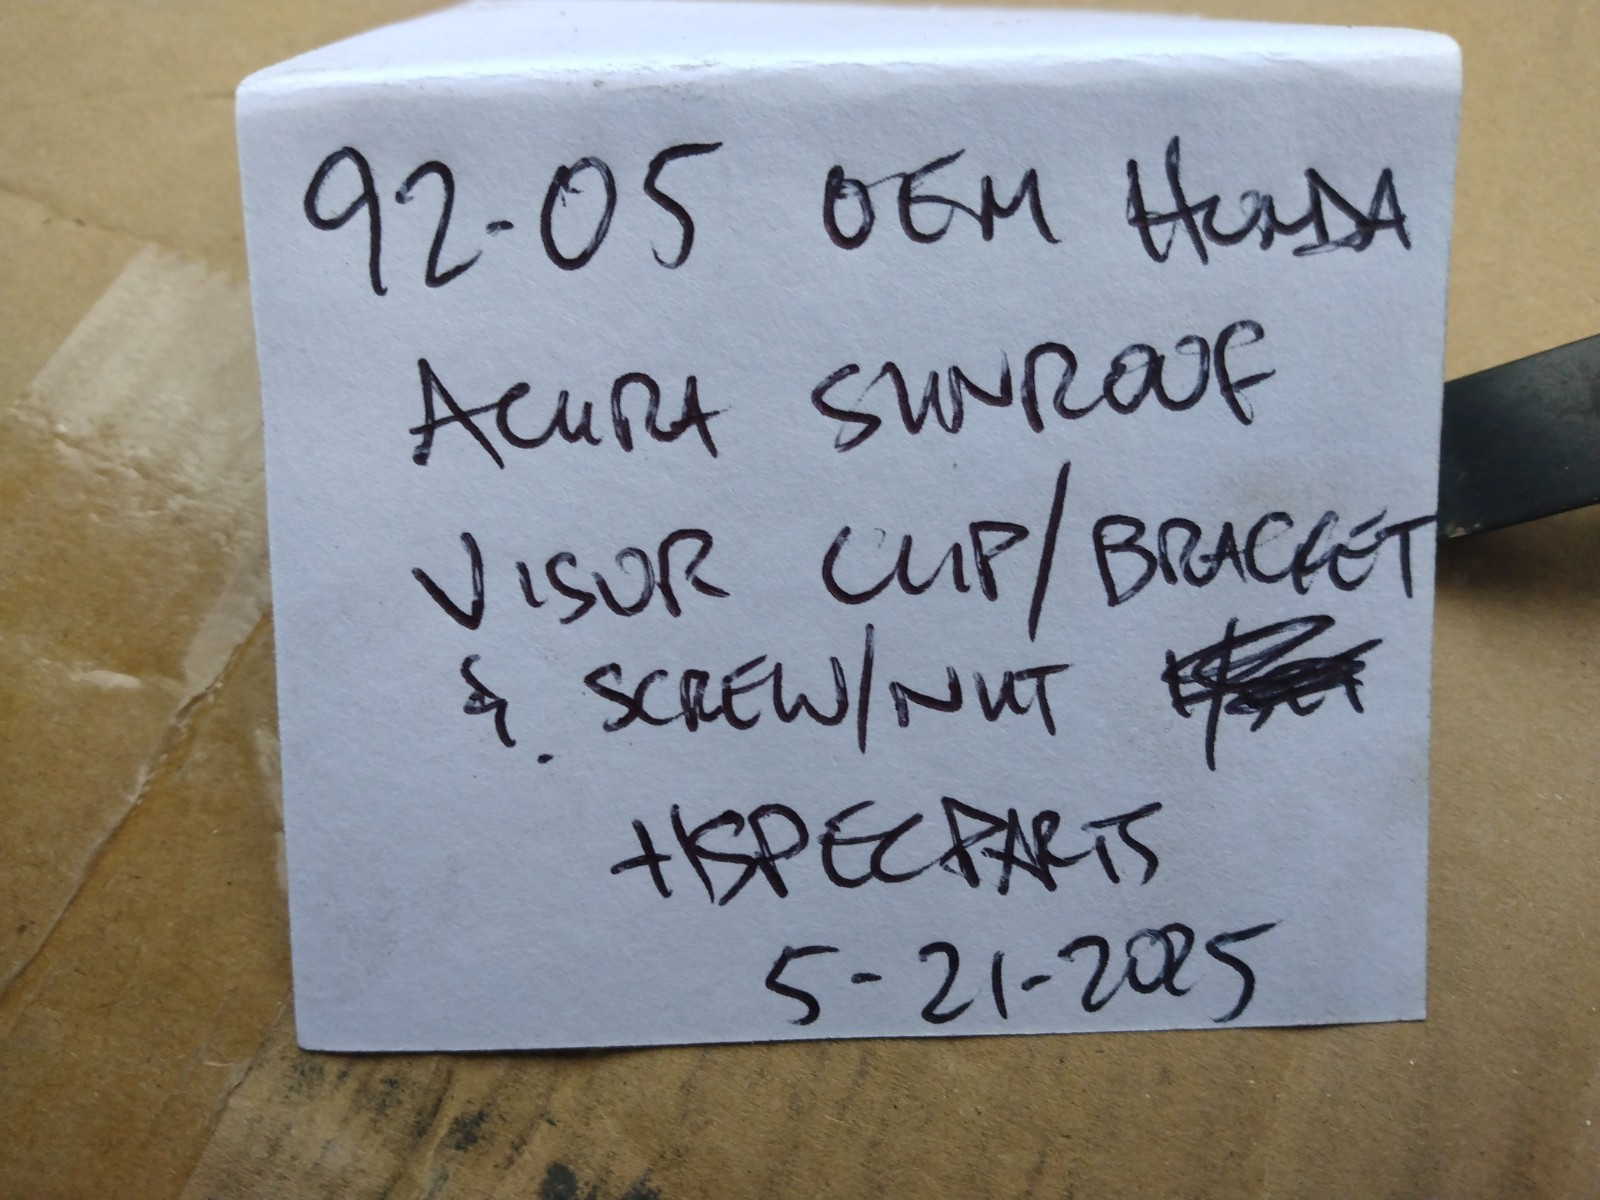 92-05 OEM HONDA
ACURA SUNROOF
VISOR CLIP/BRACKET
&. SCREW/NUT
HSPECPARTS
5-21-2025